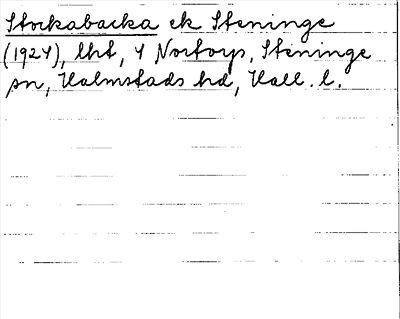 Stockabacka ek Steninge
(1927), lht, Y Nortorp, Steninge
sn, Halmstads hd, Hall. l.